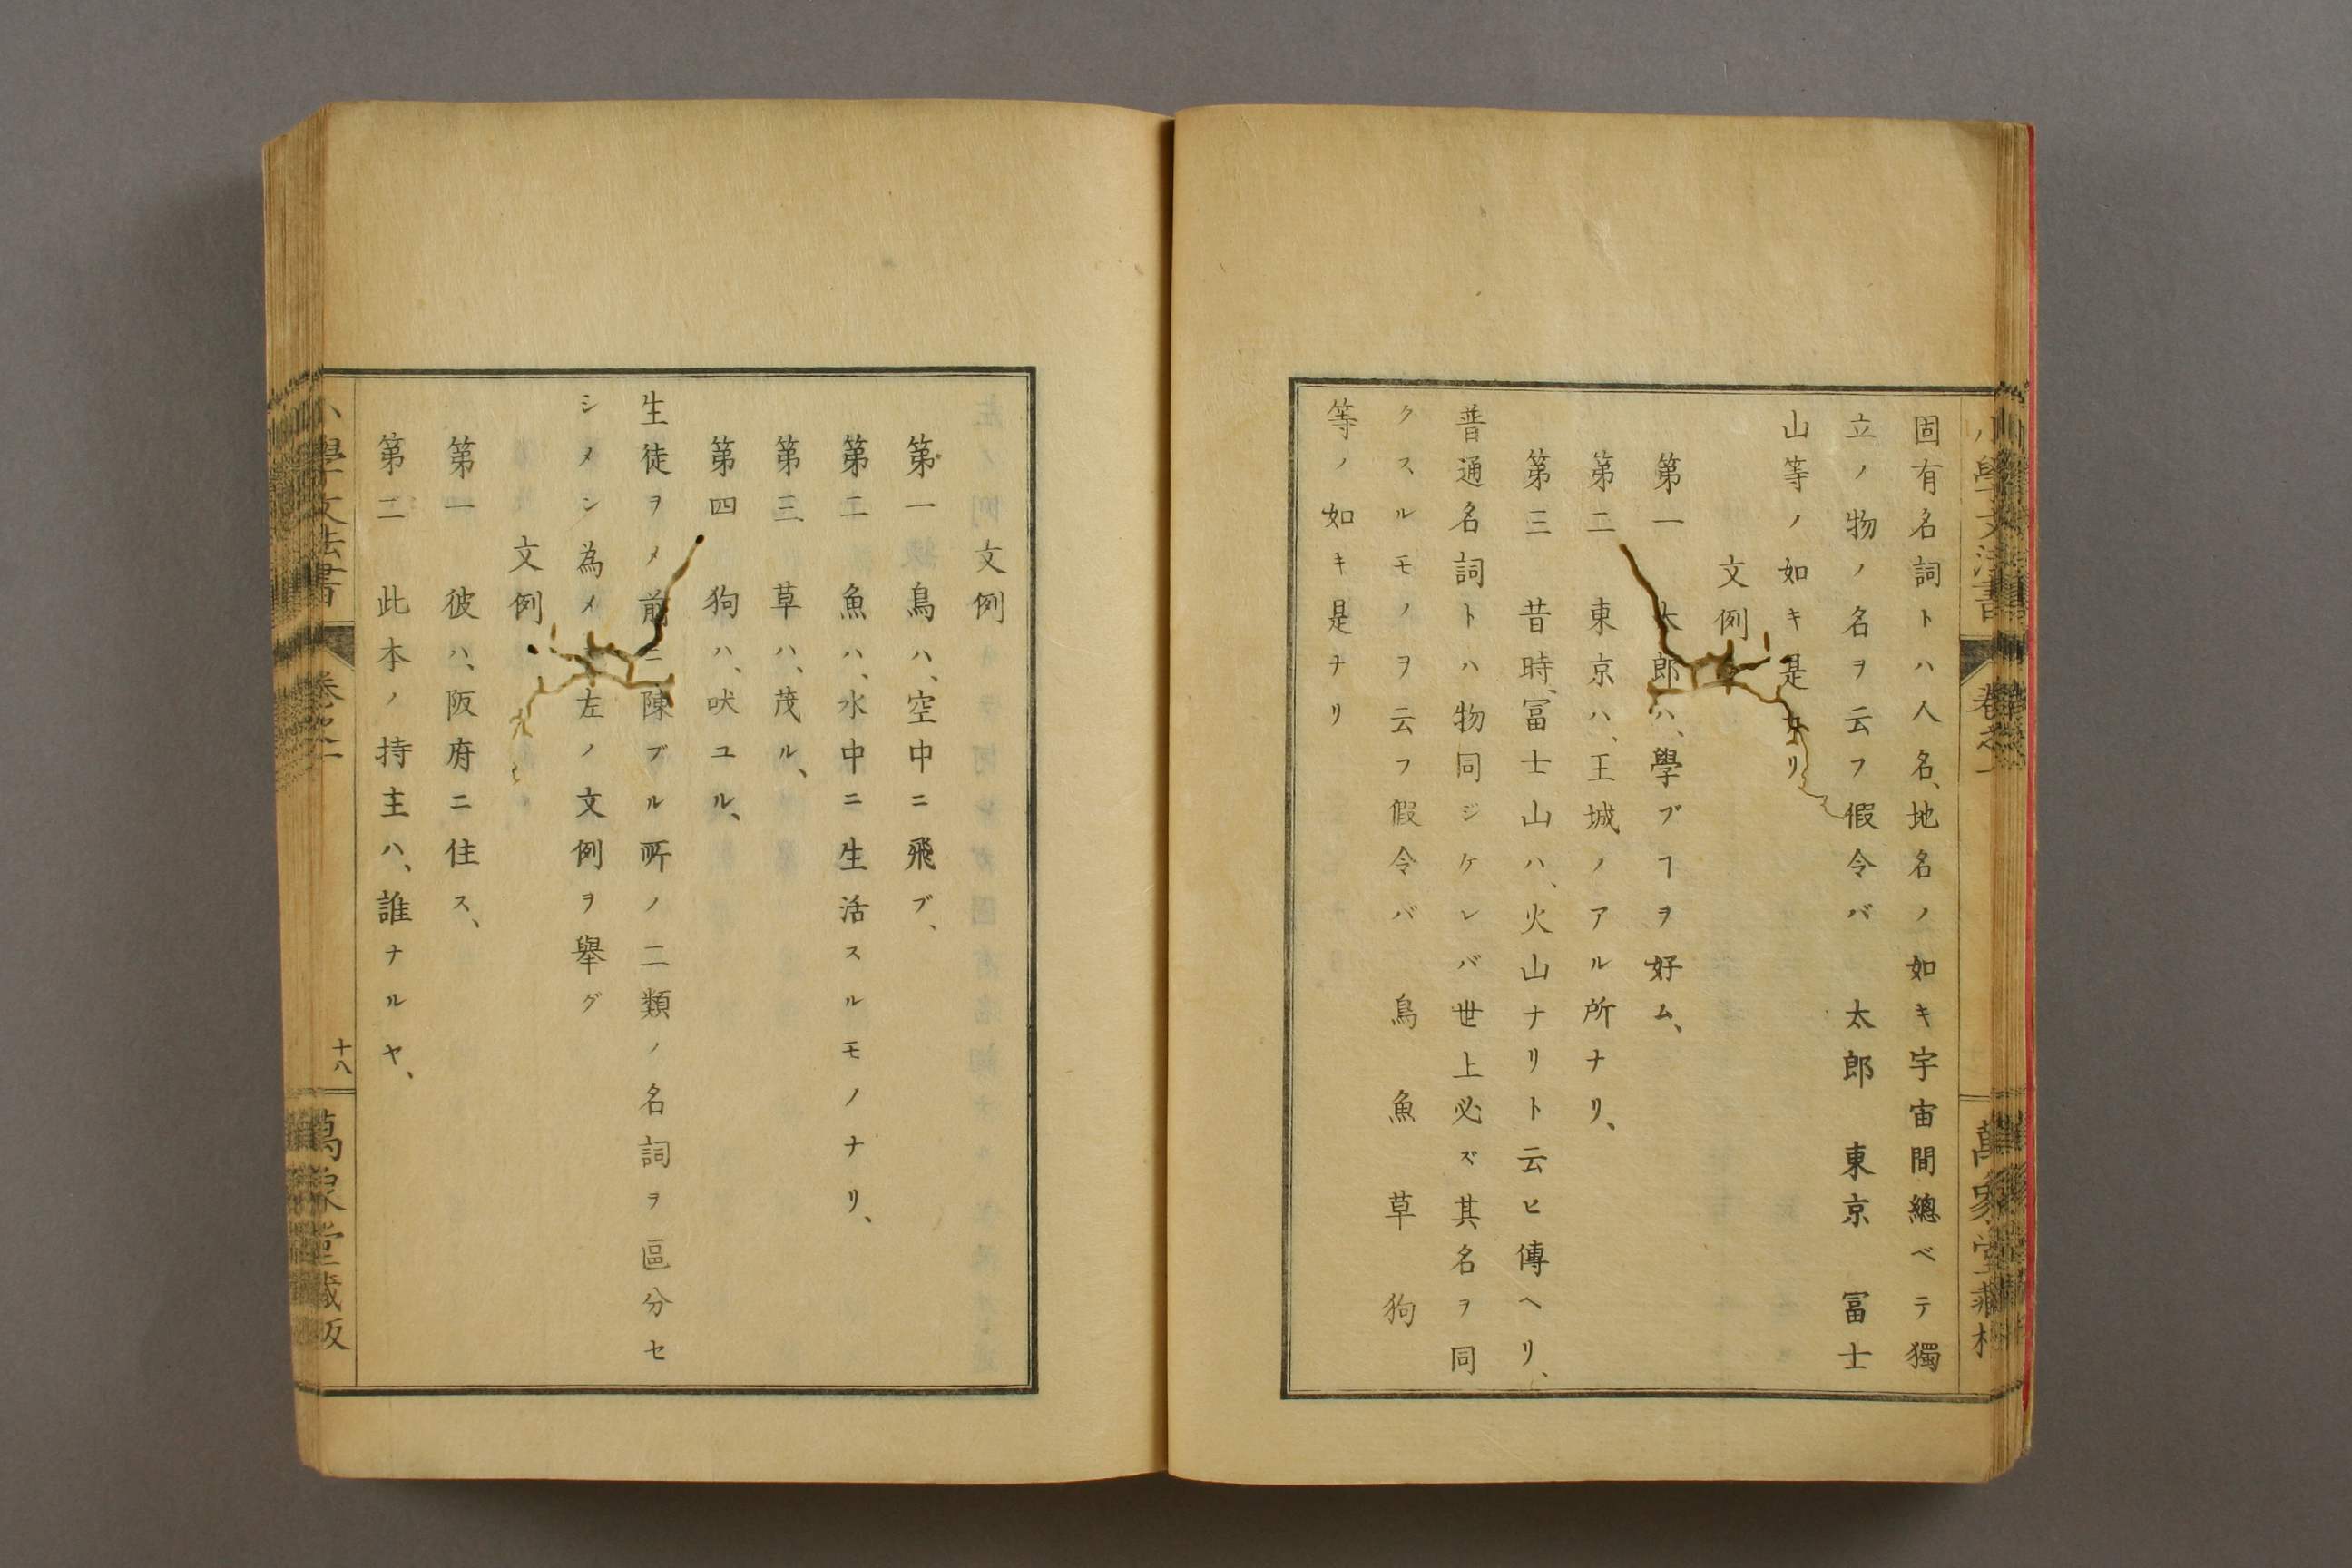 固有名詞トハ人名、地名ノ如キ宇宙間總ベテ獨
立ノ物ノ名ヲ云フ假令バ　太郎　東京　冨士
山等ノ如キ是ナリ
文例
第一　太郎ハ、學ブヿヲ好ム、
第二　東京ハ、王城ノアル所ナリ、
第三　昔時、冨士山ハ、火山ナリト云ヒ傳ヘリ、
普通名詞トハ物同ジケレバ世上必ズ其名ヲ同
クスルモノヲ云フ假令バ　鳥　魚　草　狗
等ノ如キ是ナリ
小學文法書
卷之一
萬象堂藏板
文例
第一　鳥ハ、空中ニ飛ブ、
第二　魚ハ、水中ニ生活スルモノナリ、
第三　草ハ、茂ル、
第四　狗ハ、吠ユル、
生徒ヲメ前ニ陳ブル所ノ二類ノ名詞ヲ區分セ
シメン為メ左ノ文例ヲ舉グ
文例
第一　彼ハ、阪府ニ住ス、
第二　此本ノ持主ハ、誰ナルヤ、
小學文法書
卷之一
十八
萬象堂藏板